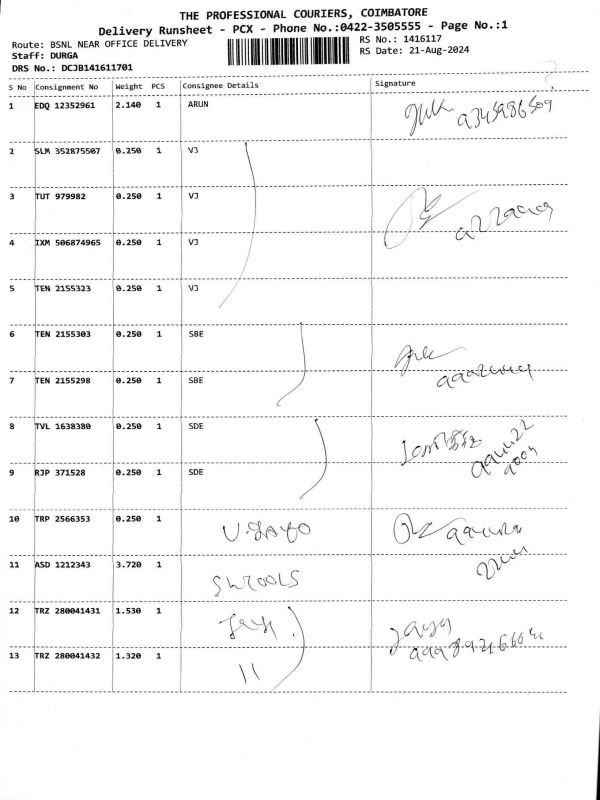 THE PROFESSIONAL COURIERS, COIMBATORE
Delivery Runsheet - PCX - Phone No.:0422-3505555 - Page No.:1
Route: BSNL NEAR OFFICE DELIVERY
RS No.: 1416117
Staff: DURGA
RS Date: 21-Aug-2024
DRS No.: DCJB141611701
S No Consignment No Weight PCS Consignee Details Signature
1 EDQ 12352961 2.140 1 ARUN
2 SLM 352875507 0.250 1 VJ
3 TUT 979982 0.250 1 VJ
4 IXM 506874965 0.250 1 VJ
5 TEN 2155323 0.250 1 VJ
6 TEN 2155303 0.250 1 SBE
7 TEN 2155298 0.250 1 SBE
8 TVL 1638380 0.250 1 SDE
9 RJP 371528 0.250 1 SDE
10 TRP 2566353 0.250 1
11 ASD 1212343 3.720 1
12 TRZ 280041431 1.530 1
13 TRZ 280041432 1.320 1 11